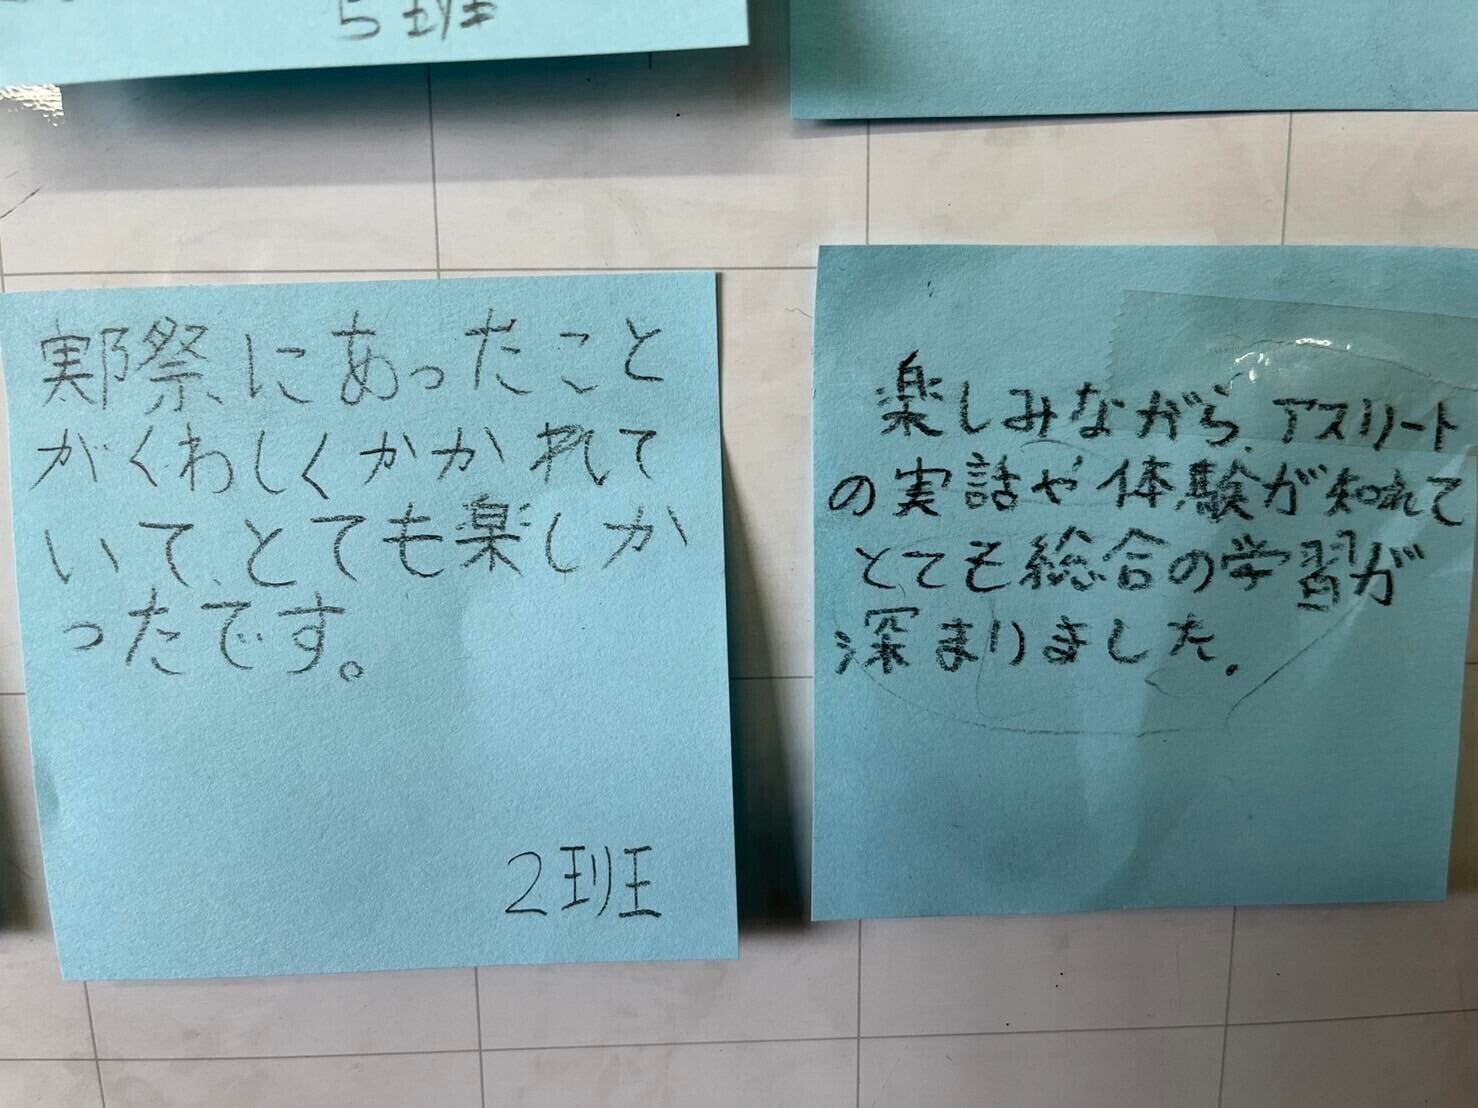 5班
実際にあったこと
がくわしくかかれて
いて、とても楽しか
ったです。
2班
楽しみながら、アスリート
の実話や体験が知れて
とても総合の学習が
深まりました。